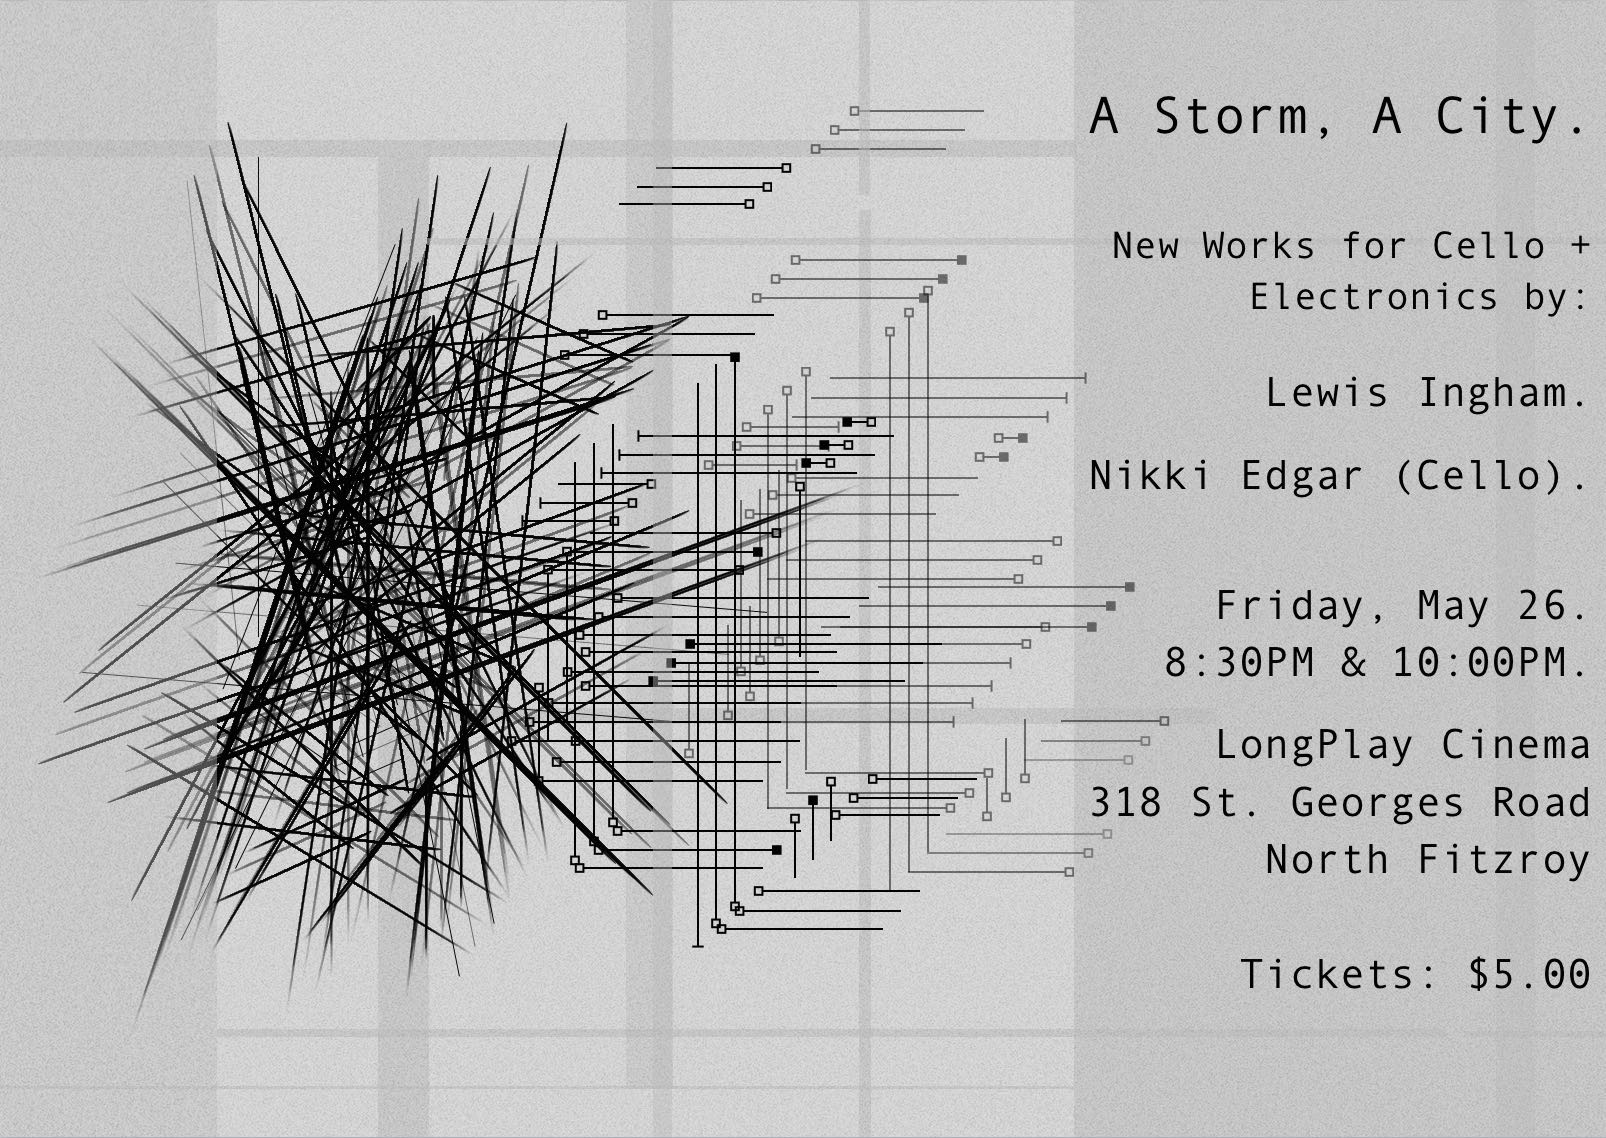 A Storm, A City.
New Works for Cello +
Electronics by:
Lewis Ingham.
Nikki Edgar (Cello).
Friday, May 26.
8:30PM & 10:00PM.
LongPlay Cinema
318 St. Georges Road
North Fitzroy
Tickets: $5.00